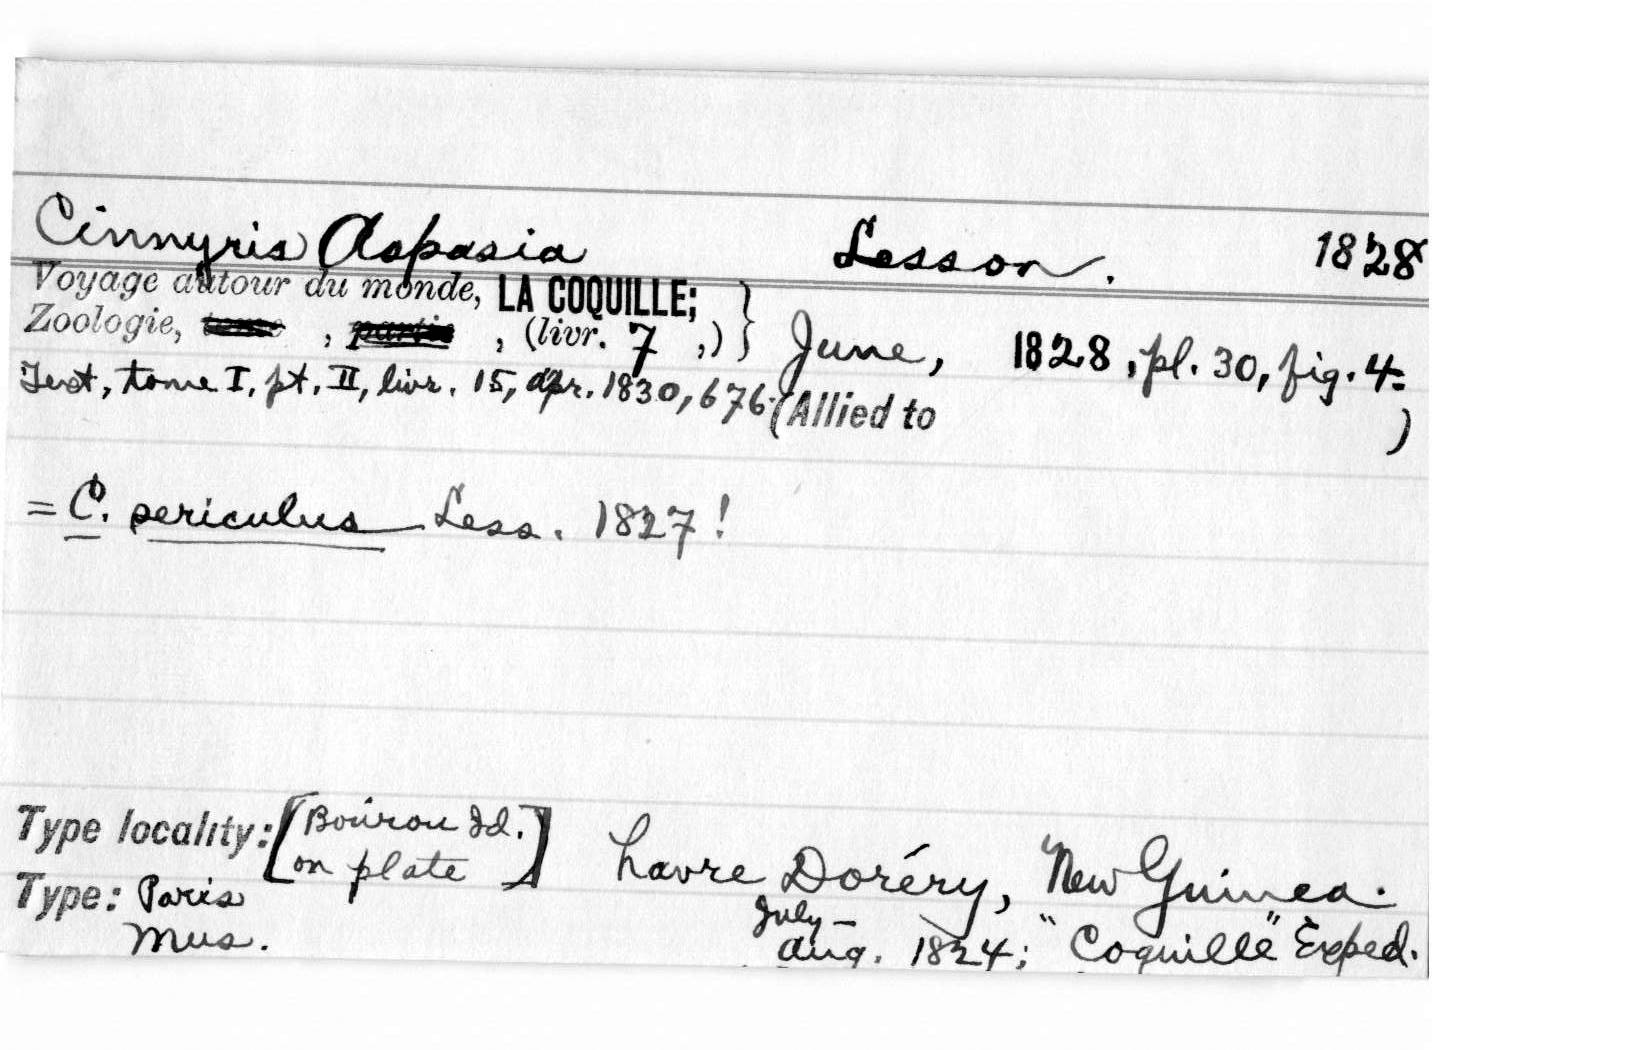 Cinnyris Aspasia Lesson. 1828
Voyage autour du monde, LA COQUILLE; }
Zoologie, tome , partie , (livr. 7 ,) June, 1828, pl. 30, fig. 4.
Text, tome I, pt. II, livr. 15, Apr. 1830, 676. (Allied to )
= C. sericulus Less. 1827!
Type locality: [Bourou Id. on plate] havre Doréry, New Guinea.
Type: Paris Mus. July – Aug. 1824; "Coquille" Exped.